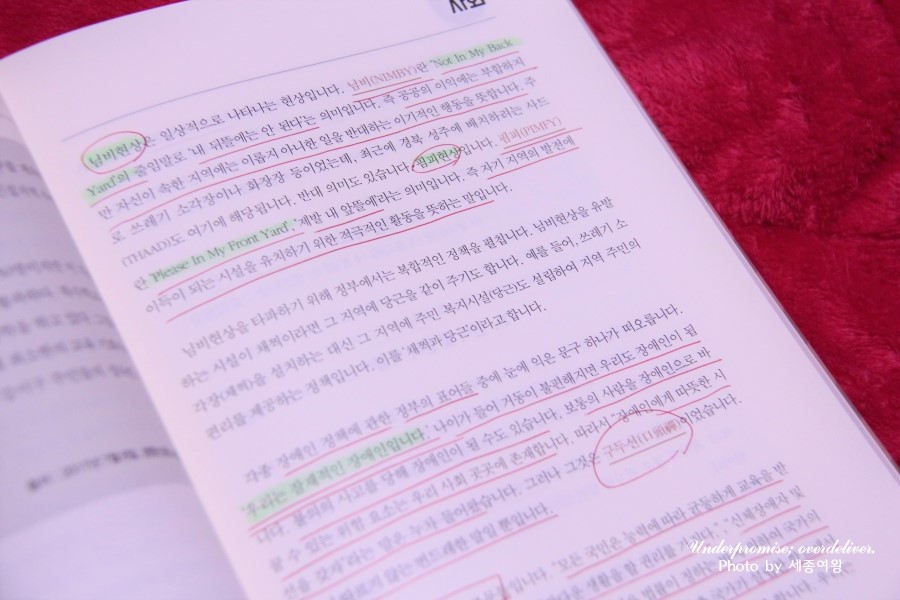 사회
님비현상은 일상적으로 나타나는 현상입니다. 님비(NIMBY)란 'Not In My Back
Yard'의 줄임말로 '내 뒤뜰에는 안 된다'는 의미입니다. 즉 공공의 이익에는 부합하지
만 자신이 속한 지역에는 이롭지 아니한 일을 반대하는 이기적인 행동을 뜻합니다. 주
로 쓰레기 소각장이나 화장장 등이었는데, 최근에 경북 성주에 배치하려는 사드
(THAAD)도 여기에 해당됩니다. 반대 의미도 있습니다. 핌피현상입니다. 핌피(PIMFY)
란 'Please In My Front Yard', '제발 내 앞뜰에'라는 의미입니다. 즉 자기 지역의 발전에
이득이 되는 시설을 유치하기 위한 적극적인 활동을 뜻하는 말입니다.
님비현상을 타파하기 위해 정부에서는 복합적인 정책을 펼칩니다. 님비현상을 유발
하는 시설이 채찍이라면 그 지역에 당근을 같이 주기도 합니다. 예를 들어, 쓰레기 소
각장(채찍)을 설치하는 대신 그 지역에 주민 복지시설(당근)도 설립하여 지역 주민의
권리를 제공하는 정책입니다. 이를 '채찍과 당근'이라고 합니다.
각종 장애인 정책에 관한 정부의 표어들 중에 눈에 익은 문구 하나가 떠오릅니다.
'우리는 잠재적인 장애인입니다.' 나이가 들어 거동이 불편해지면 우리도 장애인이 됩
니다. 불의의 사고를 당해 장애인이 될 수도 있습니다. 보통의 사람을 장애인으로 바
꿀 수 있는 위험 요소는 우리 사회 곳곳에 존재합니다. 따라서 "장애인에게 따뜻한 시
선을 갖자"라는 말은 누차 들어왔습니다. 그러나 그것은 구두선(口頭禪)이었습니다.
않는 번드레한 말일 뿐입니다.
"모든 국민은 능력에 따라 균등하게 교육을 받
생활을 할 권리를 가진다." "신체장애자 및
법률이 정하는 국가의
Underpromise; overdeliver.
Photo by 세종여왕